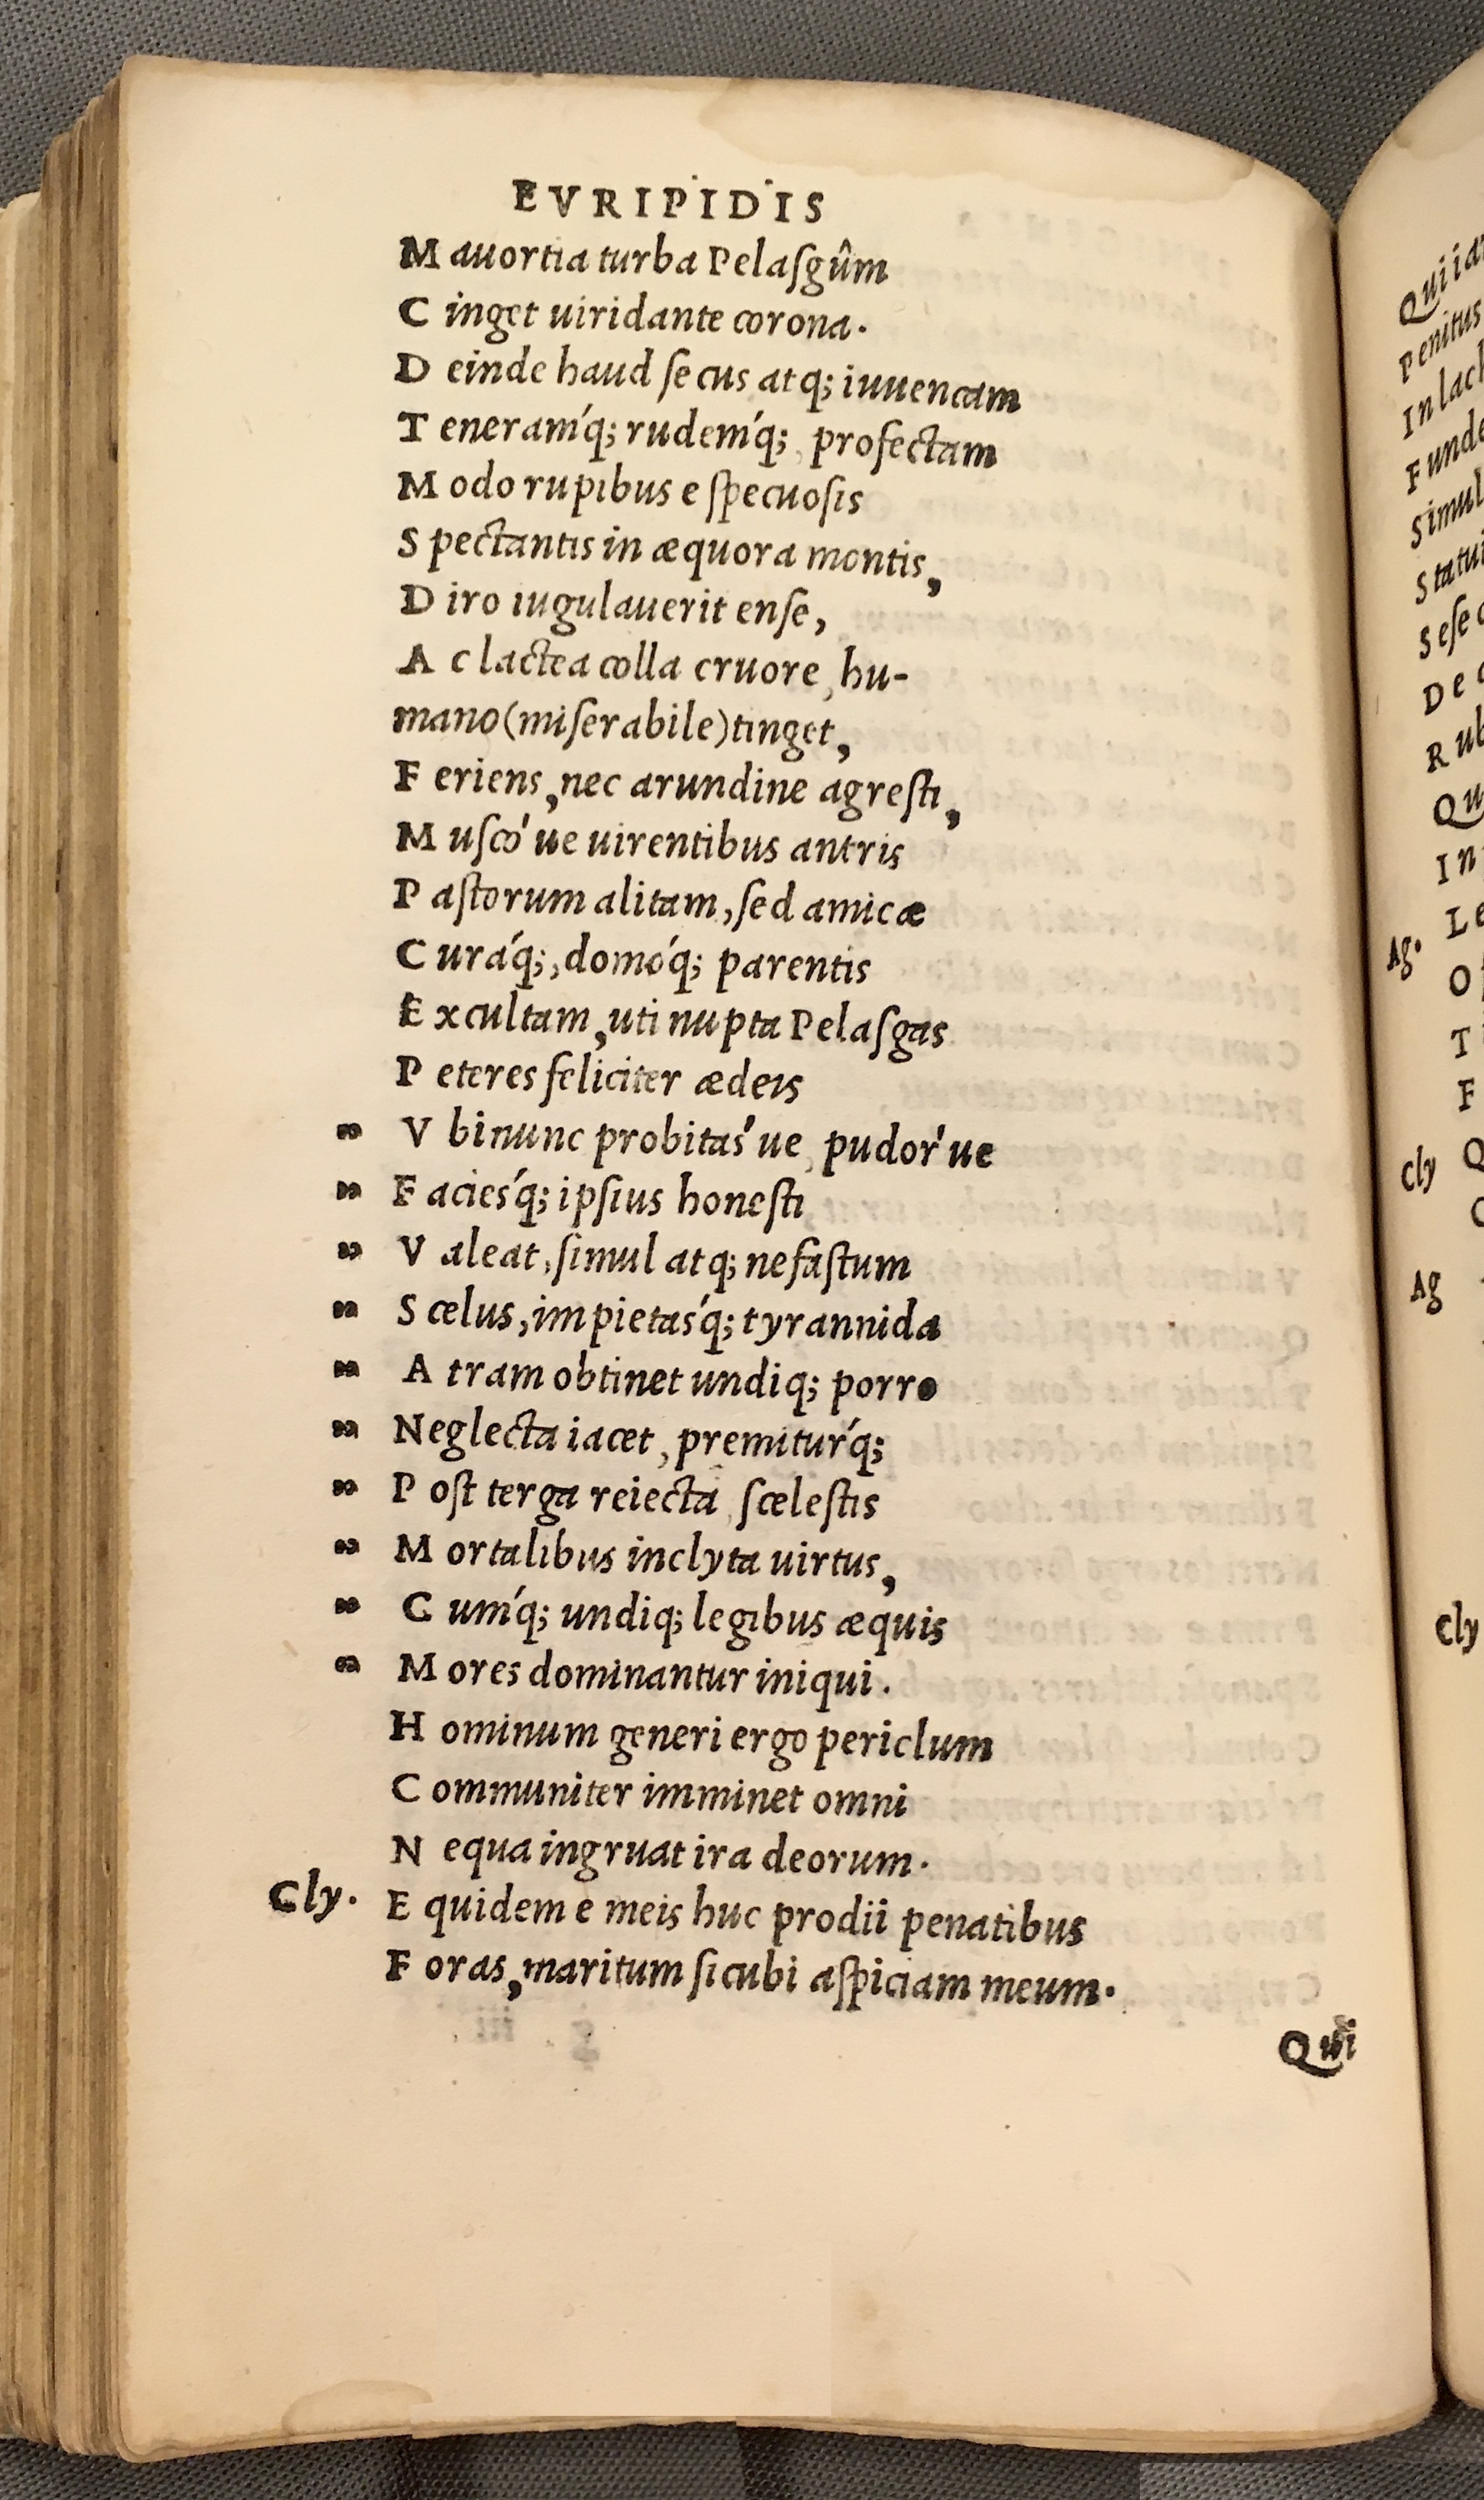 EVRIPIDIS
Mauortia turba Pelaſgûm
Cinget uiridante corona.
Deinde haud ſecus atq; iuuencam
Teneram´q; rudem´q; profectam
Modo rupibus e ſpecuoſis
Spectantis in æquora montis,
Diro iugulauerit enſe,
Ac lactea colla cruore, hu-
mano (miſerabile) tinget,
Feriens, nec arundine agreſti,
Muſco´ue uirentibus antris
Paſtorum alitam, ſed amicæ
Curá´q;, domó´q; parentis
Excultam, uti nupta Pelaſgas
Peteres feliciter ædeis
„ Vbi nunc probitas´ue, pudor´ue
„ Facies´q; ipſius honeſti
„ Valeat, ſimul atq; nefaſtum
„ Scelus, impietas´q; tyrannida
„ Atram obtinet undiq; porro
„ Neglecta iacet, premitur´q;
„ Poſt terga reiecta, ſceleſtis
„ Mortalibus inclyta uirtus,
„ Cum´q; undiq; legibus æquis
„ Mores dominantur iniqui.
Hominum generi ergo periclum
Communiter imminet omni
Nequa ingruat ira deorum.
Cly. Equidem e meis huc prodii penatibus
Foras, maritum ſicubi aſpiciam meum.
Qui
Qui
Penitus
In
Funde
Simul
Seſe
De
Ag.
Cly
Ag
Cly